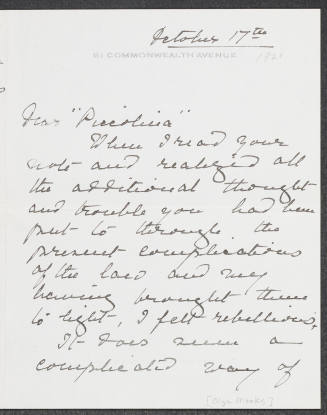 October 17th
81 COMMONWEALTH AVENUE
1921
Dear "Piccolina"
When I read your
note and realized all
the additional thought
and trouble you had been
put to through the
present complications
of the law and my
having brought them
to light, I felt rebellious,
It does seem a
complicated way of
[Olga Monks]